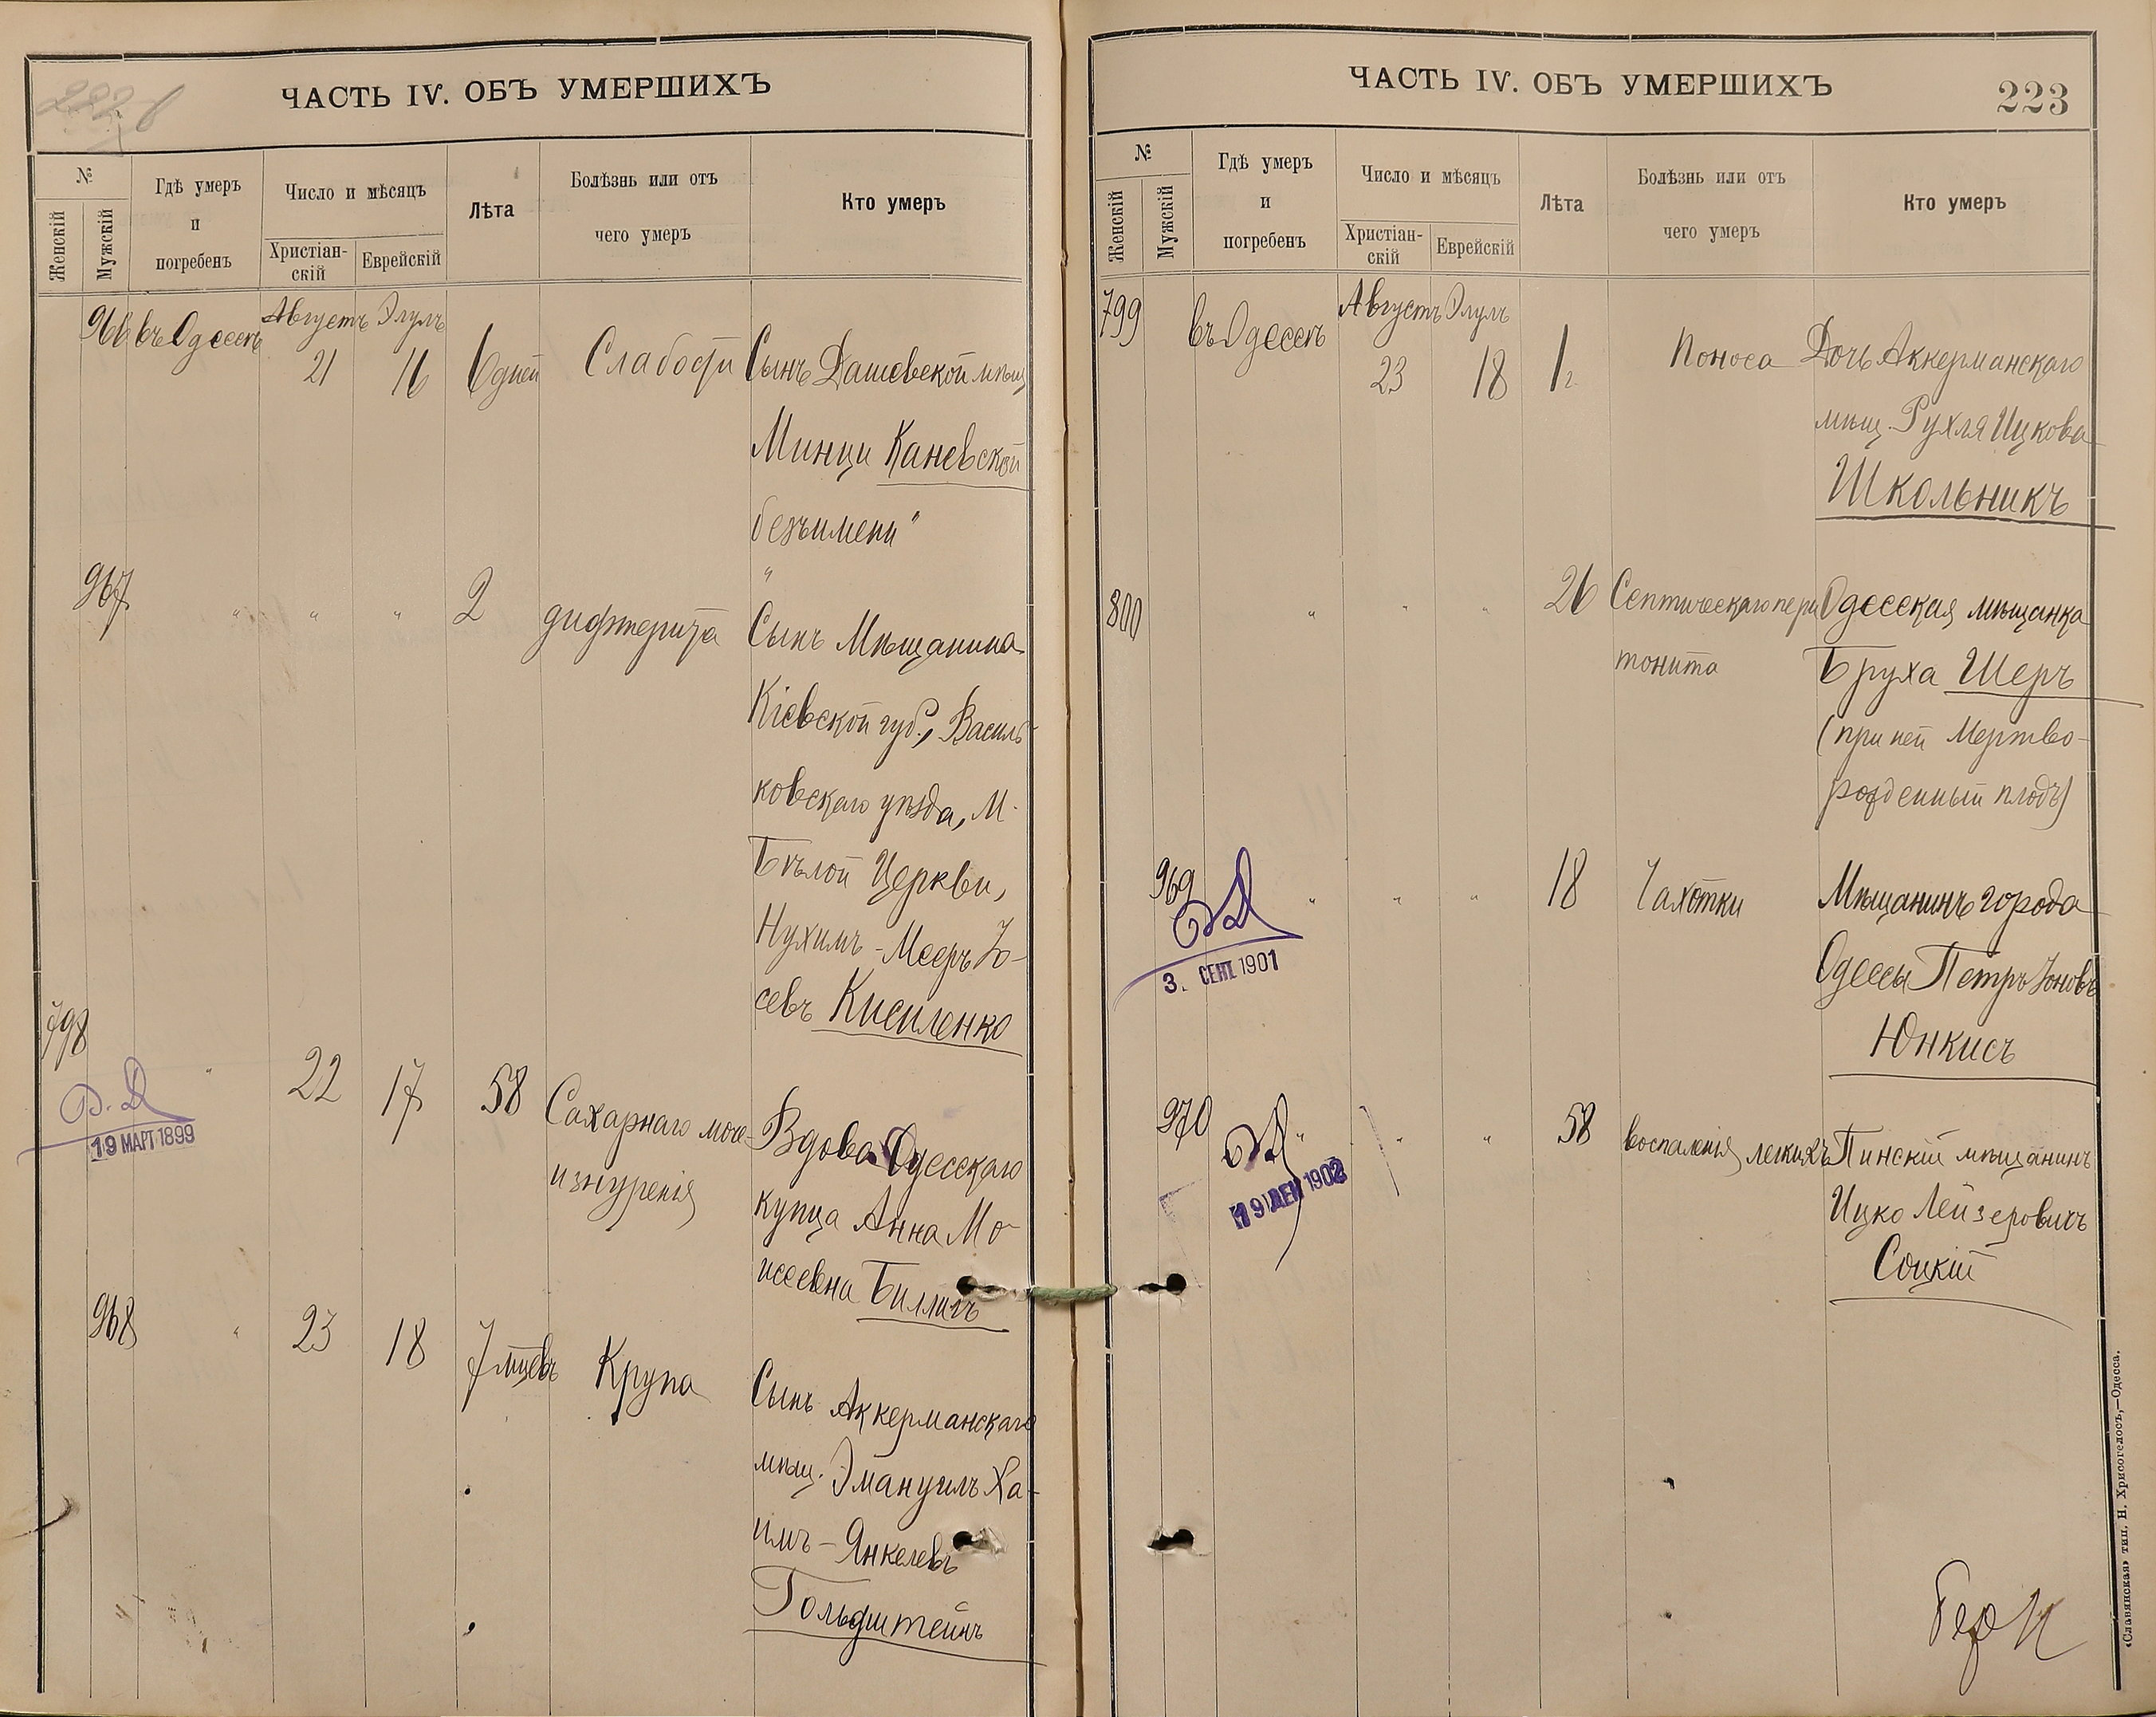 222 б
ЧАСТЬ IV. ОБЪ УМЕРШИХЪ
№
Женскій
Мужскій
Гдѣ умеръ
и
погребенъ
Число и мѣсяцъ
Христіан-
скій
Еврейскій
Лѣта
Болѣзнь или отъ
чего умеръ
Кто умеръ
966 въ Одессѣ Августъ Элулъ
21 16 6 дней Слабости Сынъ Дашевской мѣщ
Минци Каневской
безъимени "
967 " " " 2 дифтерита Сынъ Мѣщанина
Кіевской губ., Василь-
ковскаго уѣзда, М.
Бѣлой Церкви,
Нухимъ-Мееръ Іо-
севъ Кисиленко
798 " 22 17 58 Сахарнаго моче- Вдова Одесскаго
изнуренія купца Анна Мо-
исеевна Биллигъ
19 МАРТ 1899
968 " 23 18 7 мцевъ Крупа Сынъ Аккерманскаго
мѣщ. Эмануилъ Ха-
имъ-Янкелевъ
Гольдштейнъ
ЧАСТЬ IV. ОБЪ УМЕРШИХЪ
223
№
Женскій
Мужскій
Гдѣ умеръ
и
погребенъ
Число и мѣсяцъ
Христіан-
скій
Еврейскій
Лѣта
Болѣзнь или отъ
чего умеръ
Кто умеръ
799 въ Одессѣ Августъ Элулъ
23 18 1 г. Поноса Дочь Аккерманскаго
мѣщ. Рухля Ицкова
Школьникъ
800 " " " 26 Септическаго пери Одесская мѣщанка
тонита Бруха Шеръ
(при ней Мертво-
рожденный плодъ)
969 " " " 18 Чахотки Мѣщанинъ города
Одессы Петръ Іоновъ
Юнкисъ
3. СЕНТ 1901
970 " " " 58 воспаленія легкихъ Пинскій мѣщанинъ
Ицко Лейзеровичъ
Соцкій
19 ДЕК 1902
«Славянская» тип. Н. Хрисогелосъ,—Одесса.